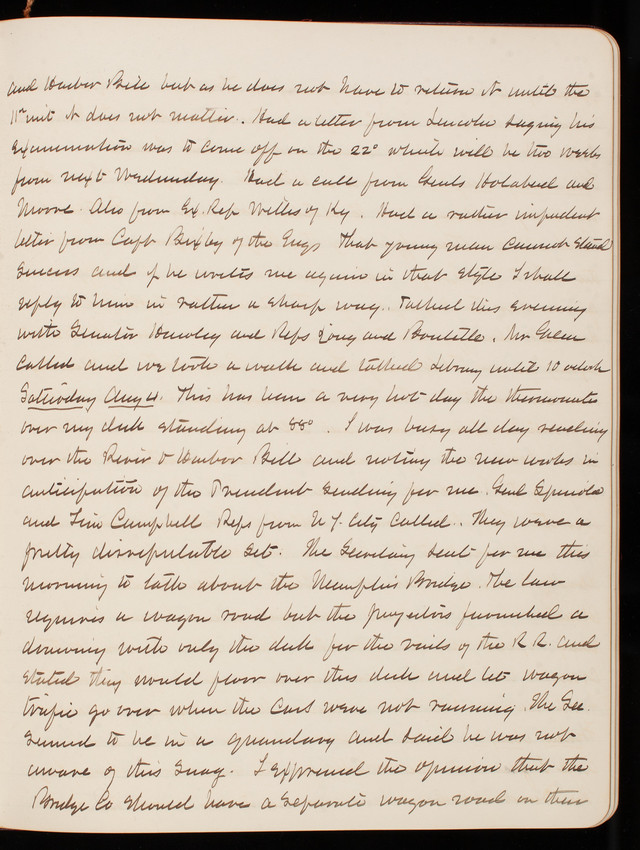 and Harbor Bill but as he does not have to return it until the
11th inst it does not matter. Had a letter from Lincoln saying his
examination was to come off on the 22d which will be two weeks
from next Wednesday. Had a call from Genls Holabird and
Moore. Also from Ex. Rep Willis of Ky. Had a rather impudent
letter from Capt Bixby of the Engs That young man cannot stand
success and if he writes me again in that style I shall
reply to him in rather a sharp way. Talked this evening
with Senator Hawley and Reps and Boutelle. Mr Green
called and we took a walk and talked Library until 10 oclock
Saturday Aug 4. This has been a very hot day the thermometer
over my desk standing at 88°. I was busy all day reading
over the River & Harbor Bill and noting the new works in
anticipation of the President sending for me. Genl Spinola
and Tim Campbell Reps from N.Y. City called. They were a
pretty disreputable set. The Secretary sent for me this
morning to talk about the Memphis Bridge. The law
requires a wagon road but the projectors furnished a
drawing with only the deck for the rails of the R.R. and
stated they would floor over this deck and let wagon
trafic go over when the cars were not running. The Sec
seemed to be in a quandary and said he was not
aware of this snag. I expressed the opinion that the
Bridge Co should have a separate wagon road on their